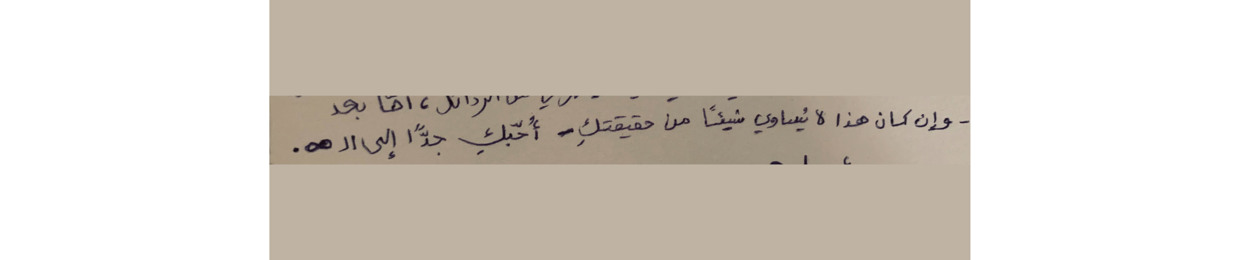 الرذائل، أمّا بعد
- وإن كان هذا لا يُساوي شيئًا من حقيقتكِ - أُحبّكِ جدًّا إلى الـ ∞.